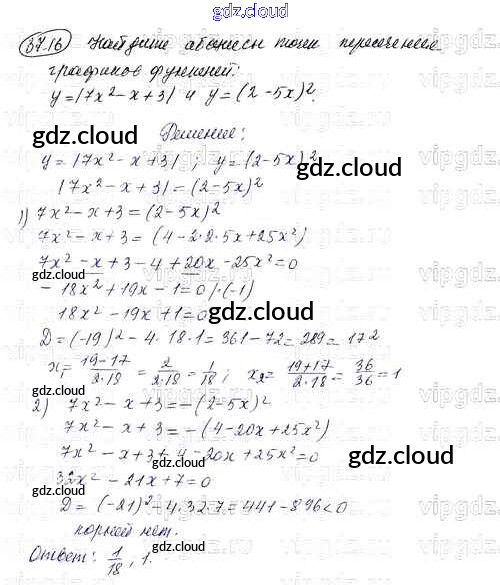 gdz.cloud
37.16 Найдите абсциссы точек пересечения
графиков функций:
y=|7x²-x+3| и y=(2-5x)².
gdz.cloud
gdz.cloud
Решение:
gdz.cloud
y=|7x²-x+3|; y=(2-5x)²
|7x²-x+3|=(2-5x)²
gdz.cloud
1) 7x²-x+3=(2-5x)²
7x²-x+3=(4-2·2·5x+25x²)
7x²-x+3-4+20x-25x²=0
gdz.cloud gdz.cloud gdz.cloud
-18x²+19x-1=0/·(-1)
18x²-19x+1=0
gdz.cloud gdz.cloud
D=(-19)²-4·18·1=361-72=289=17²
x₁=(19-17)/(2·18)=2/(2·18)=1/18; x₂=(19+17)/(2·18)=36/36=1
gdz.cloud
2) 7x²-x+3=-(2-5x)²
7x²-x+3=-(4-20x+25x²)
7x²-x+3+4-20x+25x²=0
gdz.cloud
gdz.cloud
32x²-21x+7=0
D=(-21)²-4·32·7=441-896<0
gdz.cloud
корней нет.
Ответ: 1/18, 1.
gdz.cloud
gdz.cloud